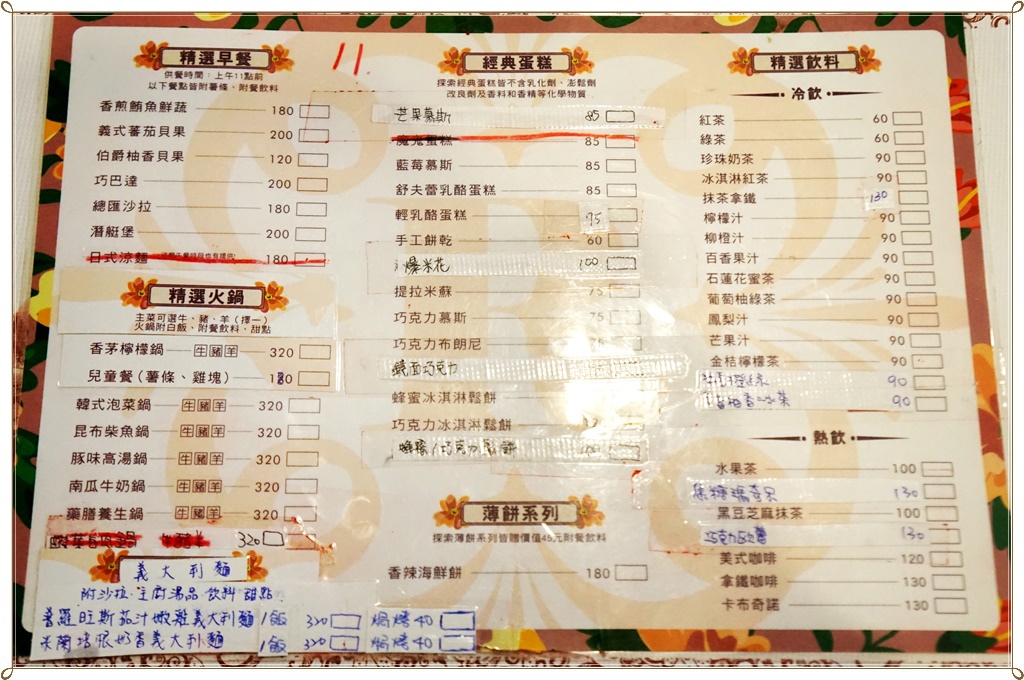 11
精選早餐
供餐時間：上午11點前
以下餐點皆附薯條、附餐飲料
香煎鮪魚鮮蔬 180
義式蕃茄貝果 200
伯爵柚香貝果 120
巧巴達 200
總匯沙拉 180
潛艇堡 200
日式涼麵 180
精選火鍋
主菜可選牛、豬、羊(擇一)
火鍋附白飯、附餐飲料、甜點
香茅檸檬鍋 牛 豬 羊 320
兒童餐(薯條、雞塊) 180
韓式泡菜鍋 牛 豬 羊 320
昆布柴魚鍋 牛 豬 羊 320
豚味高湯鍋 牛 豬 羊 320
南瓜牛奶鍋 牛 豬 羊 320
藥膳養生鍋 牛 豬 羊 320
320
義大利麵
附沙拉 主廚湯品 飲料 甜點
普羅旺斯茄汁嫩雞義大利麵/飯 320 焗烤40
米蘭培根奶香義大利麵/飯 320 焗烤40
經典蛋糕
探索經典蛋糕皆不含乳化劑、澎鬆劑
改良劑及香料和香精等化學物質
芒果慕斯 85
魔鬼蛋糕 85
藍莓慕斯 85
舒夫蕾乳酪蛋糕 85
輕乳酪蛋糕 95
手工餅乾 60
爆米花 100
提拉米蘇 75
巧克力慕斯 75
巧克力布朗尼
鏡面巧克力
蜂蜜冰淇淋鬆餅
巧克力冰淇淋鬆餅
蜂蜜/巧克力鬆餅
薄餅系列
探索薄餅系列皆贈價值45元附餐飲料
香辣海鮮餅 180
精選飲料
冷飲
紅茶 60
綠茶 60
珍珠奶茶 90
冰淇淋紅茶 90
抹茶拿鐵 130
檸檬汁 90
柳橙汁 90
百香果汁 90
石蓮花蜜茶 90
葡萄柚綠茶 90
鳳梨汁 90
芒果汁 90
金桔檸檬茶 90
90
90
熱飲
水果茶 100
焦糖瑪奇朵 130
黑豆芝麻抹茶 100
巧克力歐蕾 130
美式咖啡 120
拿鐵咖啡 130
卡布奇諾 130